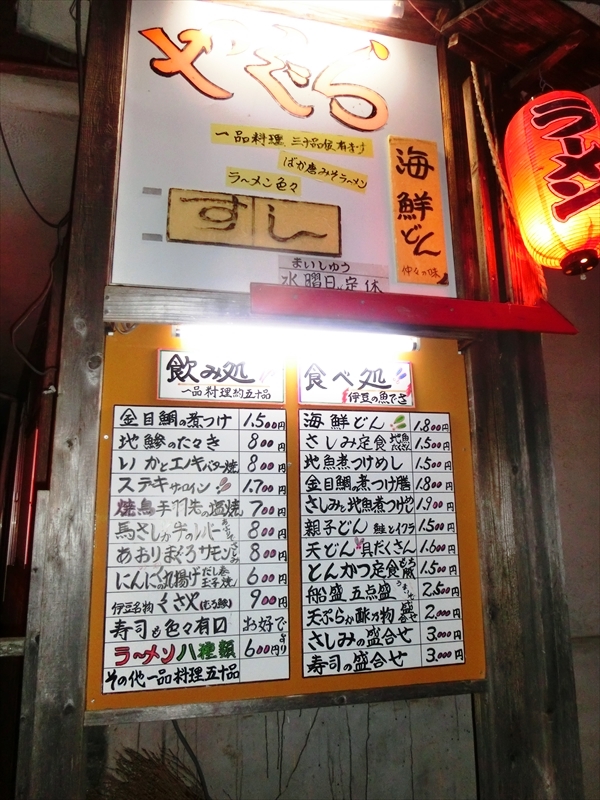 やぐら
一品料理 三十品位有ます
ばか唐みそラーメン
ラーメン色々
すし
海鮮どん
仲々の味
まいしゅう
水曜日定休
ラーメン
飲み処
一品料理約五十品
金目鯛の煮つけ 1.500円
地鯵のたゝき 800円
いかとエノキバター焼 800円
ステキサーロイン 1.700円
焼鳥手羽先の塩焼 700円
馬さしか牛のレバー 800円
あおりまぐろサモン 800円
にんにくの丸揚げ だし巻玉子焼 600円
伊豆名物くさや 900円
寿司も色々有口 お好で
ラーメン八種類 600円より
その他一品料理五十品
食べ処
伊豆の魚でさ
海鮮どん 1.800円
さしみ定食 地魚たくさん 1.500円
地魚煮つけめし 1.500円
金目鯛の煮つけ膳 1.800円
さしみと地魚煮つけめし 1.900円
親子どん 鮭とイクラ 1.500円
天どん 具だくさん 1.600円
とんかつ定食 もち豚 1.500円
船盛 五点盛 2.500円
天ぷらか酢ノ物 盛合せ 2.000円
さしみの盛合せ 3.000円
寿司の盛合せ 3.000円